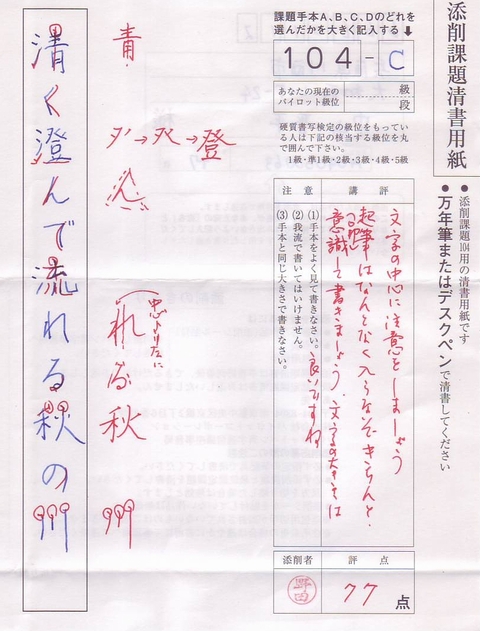 添削課題清書用紙
●添削課題104用の清書用紙です
●万年筆またはデスクペンで清書してください
課題手本A、B、C、Dのどれを
選んだかを大きく記入する
104-C
あなたの現在の
パイロット級位
級
段
硬質書写検定の級位をもってい
る人は下記の核当する級位を丸
で囲んで下さい。
1級・準1級・2級・3級・4級・5級
講評
文字の中心に注意をしましょう
起筆はなんとなく入らないできちんと
意識して書きましょう、文字の大きさは
良いですね
注意
(1)手本をよく見て書きなさい。
(2)我流で書いてはいけません。
(3)手本と同じ大きさで書きなさい。
評点
77点
添削者
野田
青
登
ん
れ
る
秋
清く澄んで流れる秋の